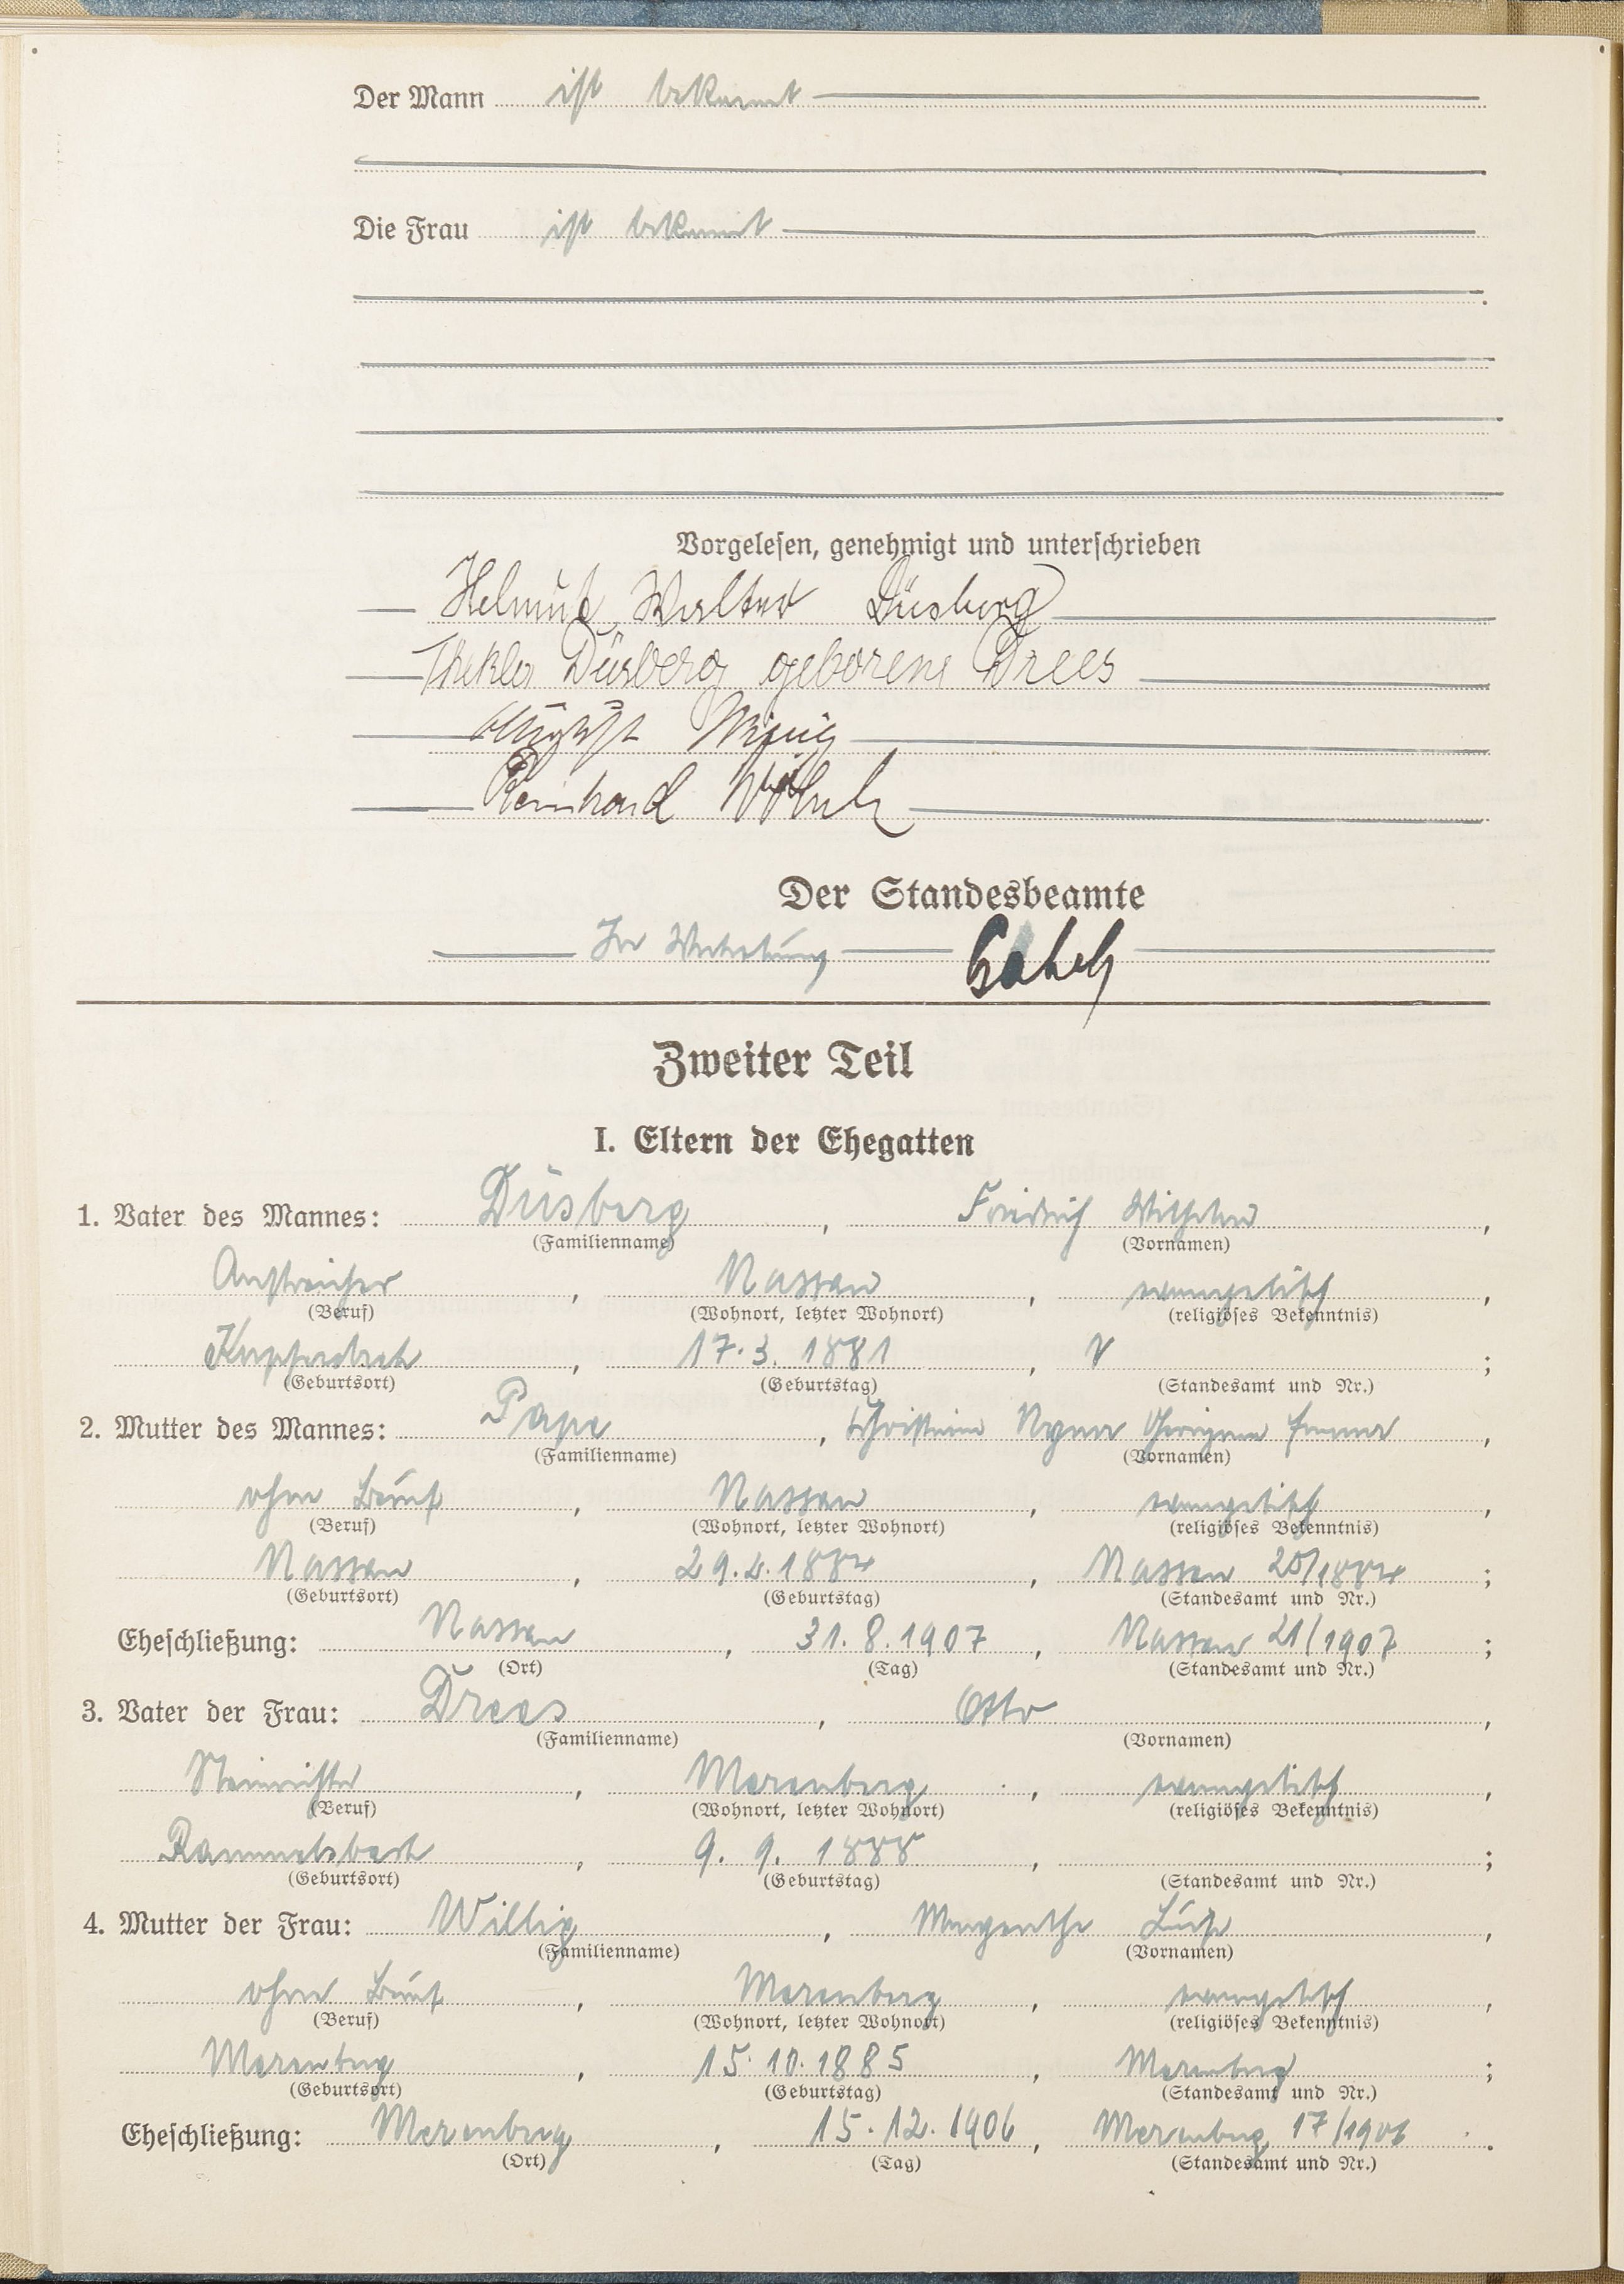 Der Mann ist bekannt
Die Frau ist bekannt
Vorgelesen, genehmigt und unterschrieben
Helmut Walter Düsberg
Thekla Düsberg geborene Drees
August
Reinhard
Der Standesbeamte
In Vertretung
Zweiter Teil
I. Eltern der Ehegatten
1. Vater des Mannes: Düsberg, Friedrich Wilhelm,
(Familienname) (Vornamen)
Anstreicher, Nassau, evangelisch,
(Beruf) (Wohnort, letzter Wohnort) (religiöses Bekenntnis)
17.3.1881,
(Geburtsort) (Geburtstag) (Standesamt und Nr.)
2. Mutter des Mannes: Pape, Christine
(Familienname) (Vornamen)
ohne Beruf, Nassau, evangelisch,
(Beruf) (Wohnort, letzter Wohnort) (religiöses Bekenntnis)
Nassau, Nassau
(Geburtsort) (Geburtstag) (Standesamt und Nr.)
Eheschließung: Nassau, 31.8.1907, Nassau 21/1907;
(Ort) (Tag) (Standesamt und Nr.)
3. Vater der Frau: Drees, Otto,
(Familienname) (Vornamen)
Steinrichter, Merenberg, evangelisch,
(Beruf) (Wohnort, letzter Wohnort) (religiöses Bekenntnis)
Rammelsbach, 9. 9. 1888, ;
(Geburtsort) (Geburtstag) (Standesamt und Nr.)
4. Mutter der Frau: Willig, Margarethe Luise,
(Familienname) (Vornamen)
ohne Beruf, Merenberg, evangelisch,
(Beruf) (Wohnort, letzter Wohnort) (religiöses Bekenntnis)
Merenberg, 15.10.1885, Merenberg;
(Geburtsort) (Geburtstag) (Standesamt und Nr.)
Eheschließung: Merenberg, 15.12.1906, Merenberg 17/1906.
(Ort) (Tag) (Standesamt und Nr.)